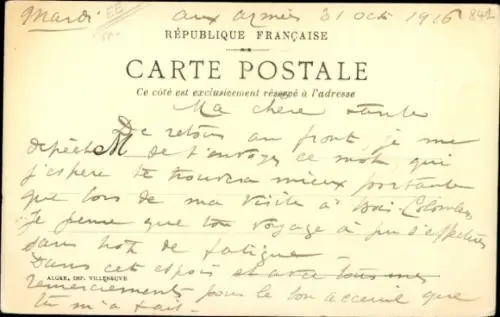 Mardi aux armées 31 oct 1916 842
RÉPUBLIQUE FRANÇAISE
CARTE POSTALE
Ce côté est exclusivement réservé à l'adresse
Ma chère tante
De retour au front, je me
dépêche de t'envoyer ce mot qui
j'espère te trouvera mieux portante
que lors de ma visite à Bois-Colombes
Je pense que ton voyage a pu s'effectuer
sans trop de fatigue
Dans cet espoir et avec tous mes
ALGER, IMP. VILLENEUVE
remerciements pour le bon accueil que
tu m'a fait.